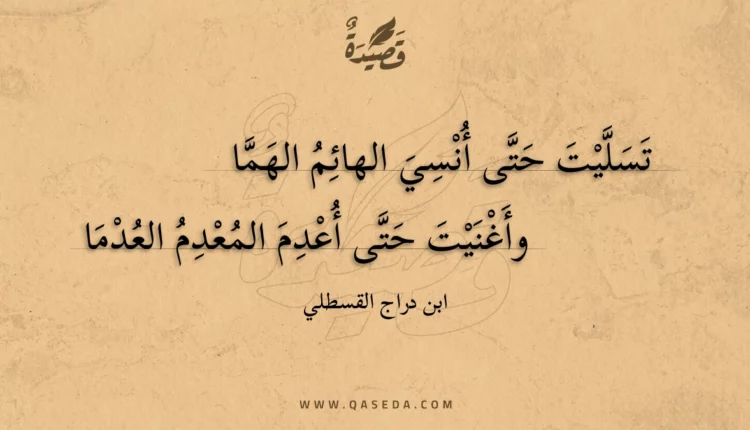 قَصِيْدَةٌ
تَسَلَّيْتَ حَتَّى أُنْسِيَ الهائِمُ الهَمَّا
وأَغْنَيْتَ حَتَّى أُعْدِمَ المُعْدِمُ العُدْمَا
ابن دراج القسطلي
WWW.QASEDA.COM